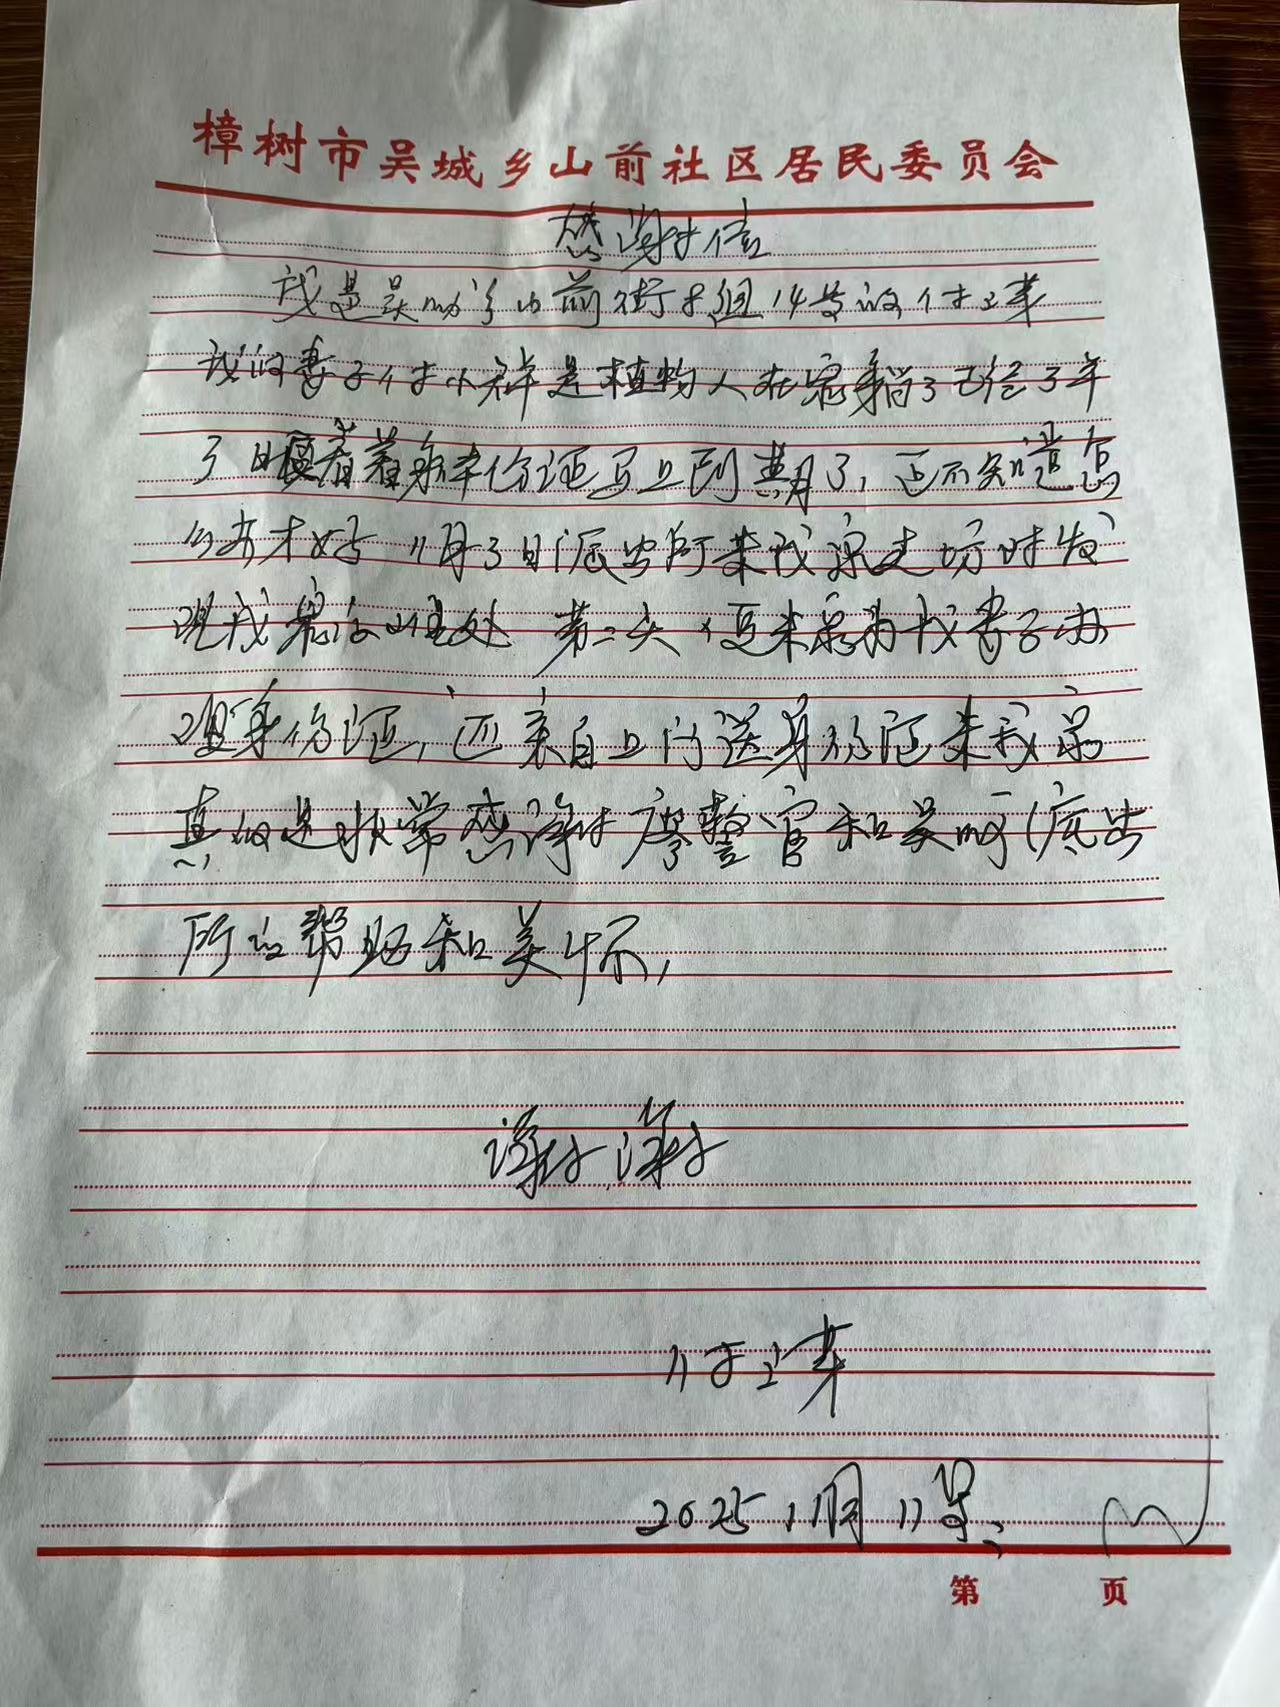 樟树市吴城乡山前社区居民委员会
感谢信
我是吴城乡山前街8组14号的付
我的妻子付小祥是植物人在家躺了已经3年
了 眼看着身份证马上到期了，还不知道怎
么办才好 11月3日派出所来我家走访时发
现我家的难处 第二天 便来家为我妻子办
理身份证，还亲自上门送身份证来我家
真的是非常感谢廖警官和吴城派出
所的帮助和关怀，
谢谢，谢谢
付
2025 11月11号
第 页